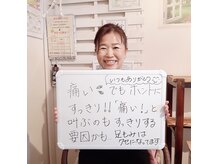 いつもありがとう
痛い でもホントに
すっきり!!“痛い!„と
叫ぶのもすっきりする
要因かも 足もみは
クセになってます